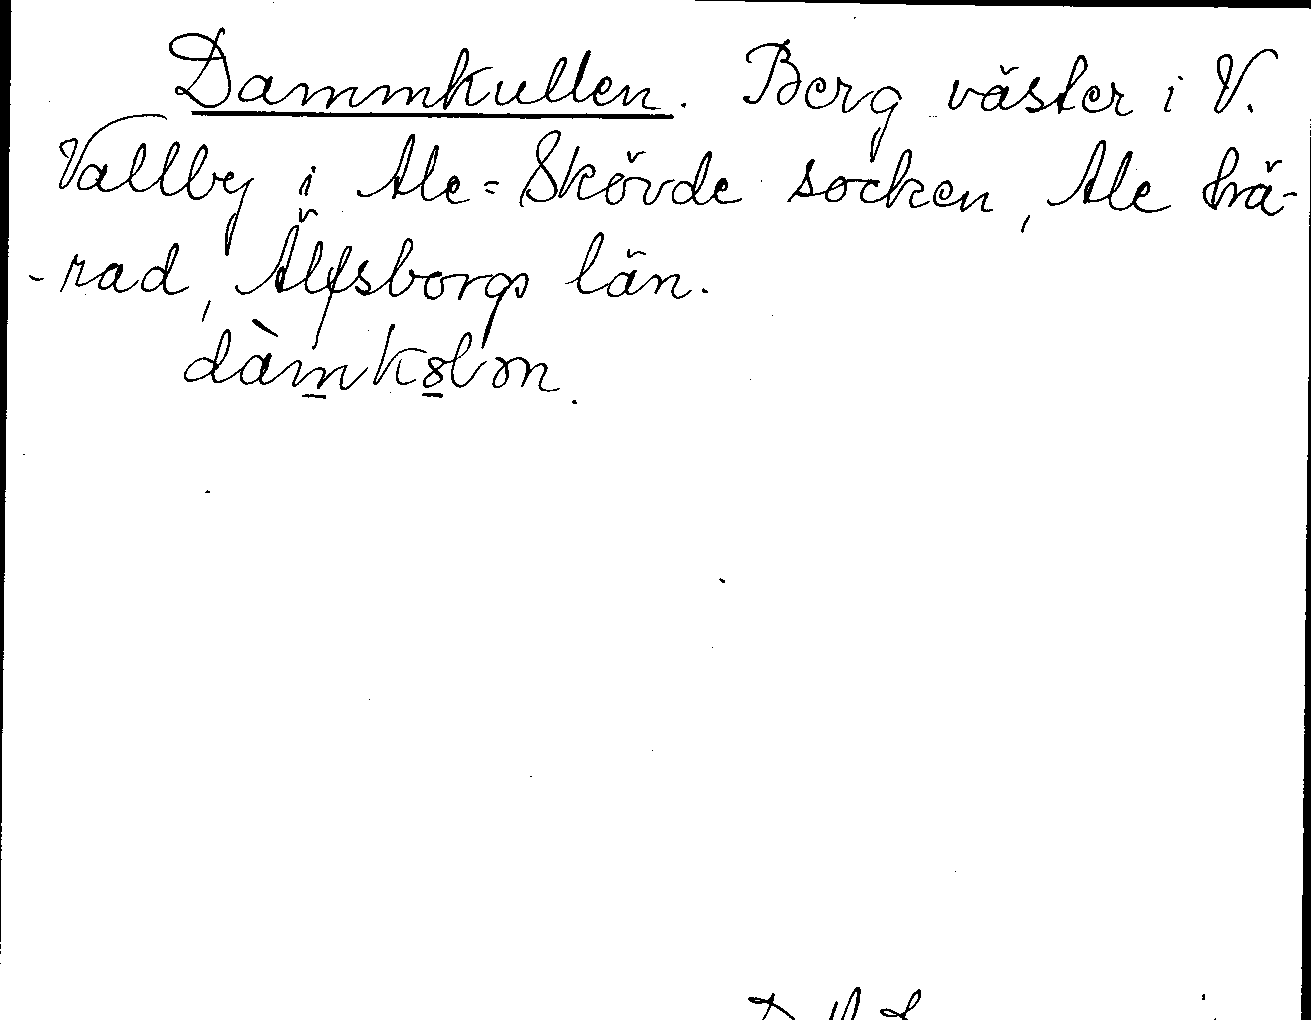 Dammkullen. Berg väster i V.
Vallby i Ale=Skövde socken, Ale hä-
-rad, Älfsborgs län.